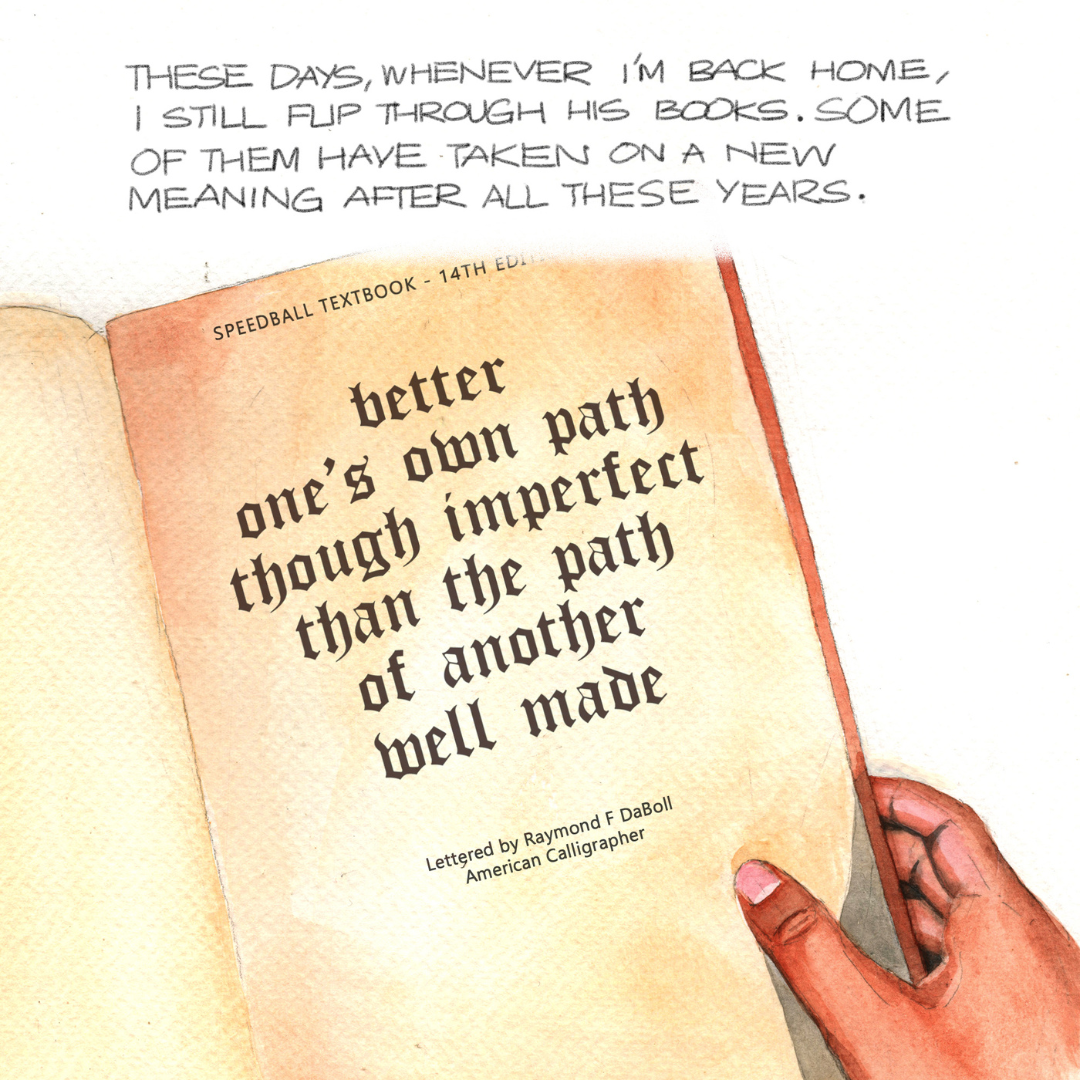 THESE DAYS, WHENEVER I'M BACK HOME,
I STILL FLIP THROUGH HIS BOOKS. SOME
OF THEM HAVE TAKEN ON A NEW
MEANING AFTER ALL THESE YEARS.
SPEEDBALL TEXTBOOK - 14TH
better
one's own path
though imperfect
than the path
of another
well made
Lettered by Raymond F DaBoll
American Calligrapher